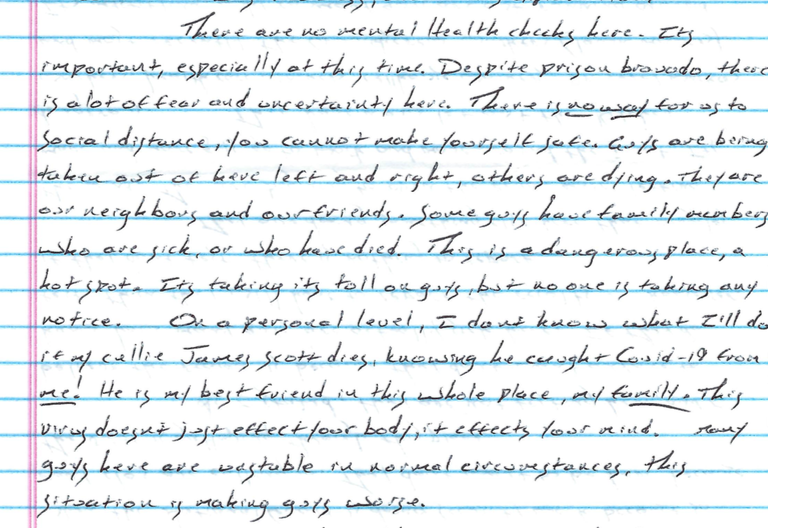 There are no mental Health checks here. Its
important, especially at this time. Despite prison bravado, there
is alot of fear and uncertainty here. There is no way for us to
social distance, you cannot make yourself safe. Guys are being
taken out of here left and right, others are dying. They are
our neighbors and our friends. Some guys have family members
who are sick, or who have died. This is a dangerous place, a
hot spot. Its taking its toll on guys, but no one is taking any
notice. On a personal level, I dont know what I'll do
if my cellie James Scott dies, knowing he caught Covid-19 from
me! He is my best friend in this whole place, my family. This
virus doesnt just effect your body, it effects your mind. many
guys here are unstable in normal circumstances, this
situation is making guys worse.